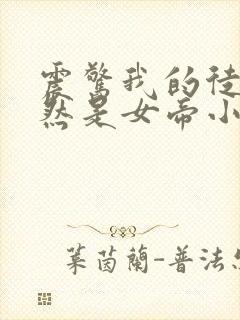 震驚我的徒
然是女帝小
葉茵蘭-普法